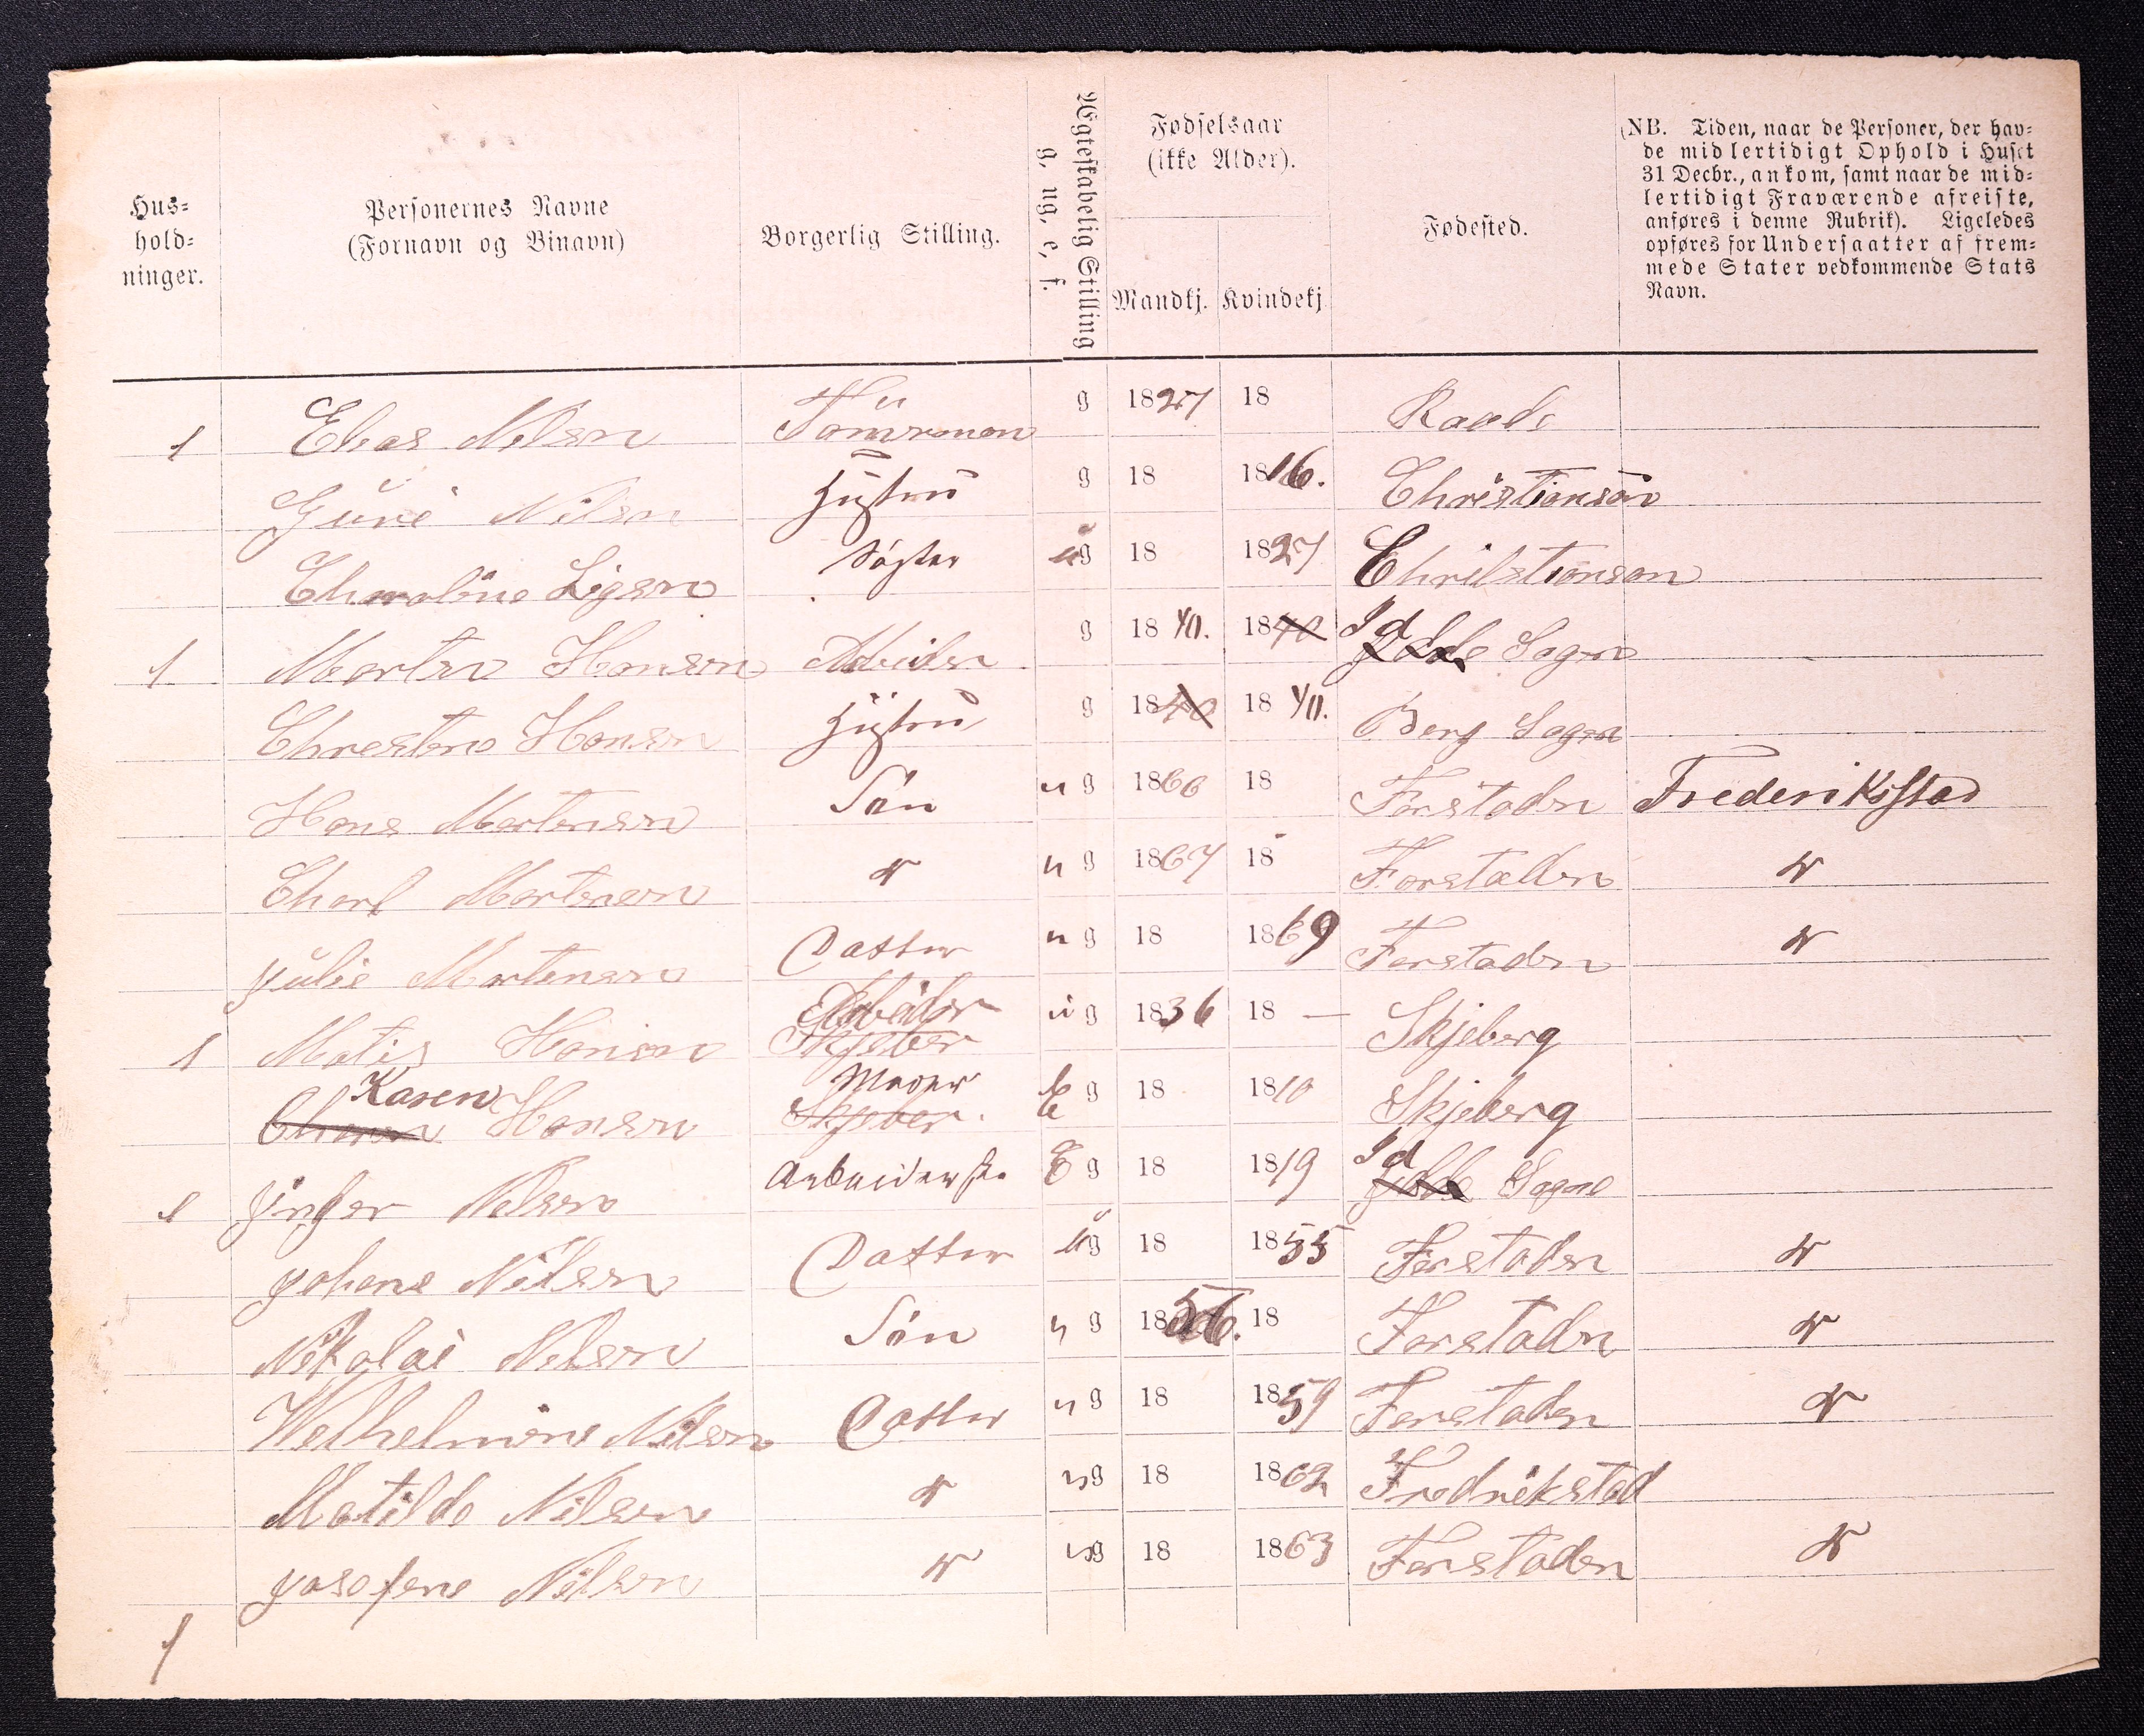 Hus-
hold-
ninger.
Personernes Navne
(Fornavn og Binavn)
Borgerlig Stilling.
Ægteskabelig Stilling
g, ug, e, f.
Fødselsaar
(ikke Alder).
Mandkj. Kvindekj
Fødested.
(NB. Tiden, naar de Personer, der hav-
de midlertidigt Ophold i Huset
31 Decbr., ankom, samt naar de mid-
lertidigt Fraværende afreiste,
anføres i denne Rubrik). Ligeledes
opføres for Undersaatter af frem-
mede Stater vedkommende Stats
Navn.
1 Elias Nilsen Tømrman g 1827 18 Raade
Guri Nilsen Hustru g 18 1816. Christiansø
Charoline Ligern Søster ug 18 1827 Christianson
1 Martin Hansen Arbeider g 1840. 1840 Id Idde Sogn
Christine Hansen Hustru g 1840 1840. Berg Sogn
Hans Martensen Søn ug 1866 18 Forstaden Frederiksstad
Charl Martensen " ug 1867 18 Forstaden "
Julie Martensen Datter ug 18 1869 Forstaden "
1 Matis Hansen Arbeider Skjeber ug 1836 18 — Skjeberg
Karen Hansen Moder Skjeber. E g 18 1810 Skjeberg
1 Jinger Nilsen Arbeiderske E g 18 1819 Id Idde Sogne
Johane Nilsen Datter ug 18 1855 Forstaden "
Nikolai Nilsen Søn ug 1856. 18 Forstaden "
Welhelmine Nilsen Datter ug 18 1859 Forstaden "
Matilde Nilsen " ug 18 1862 Fredrikstad
Josefene Nilsen " ug 18 1863 Forstaden "
1